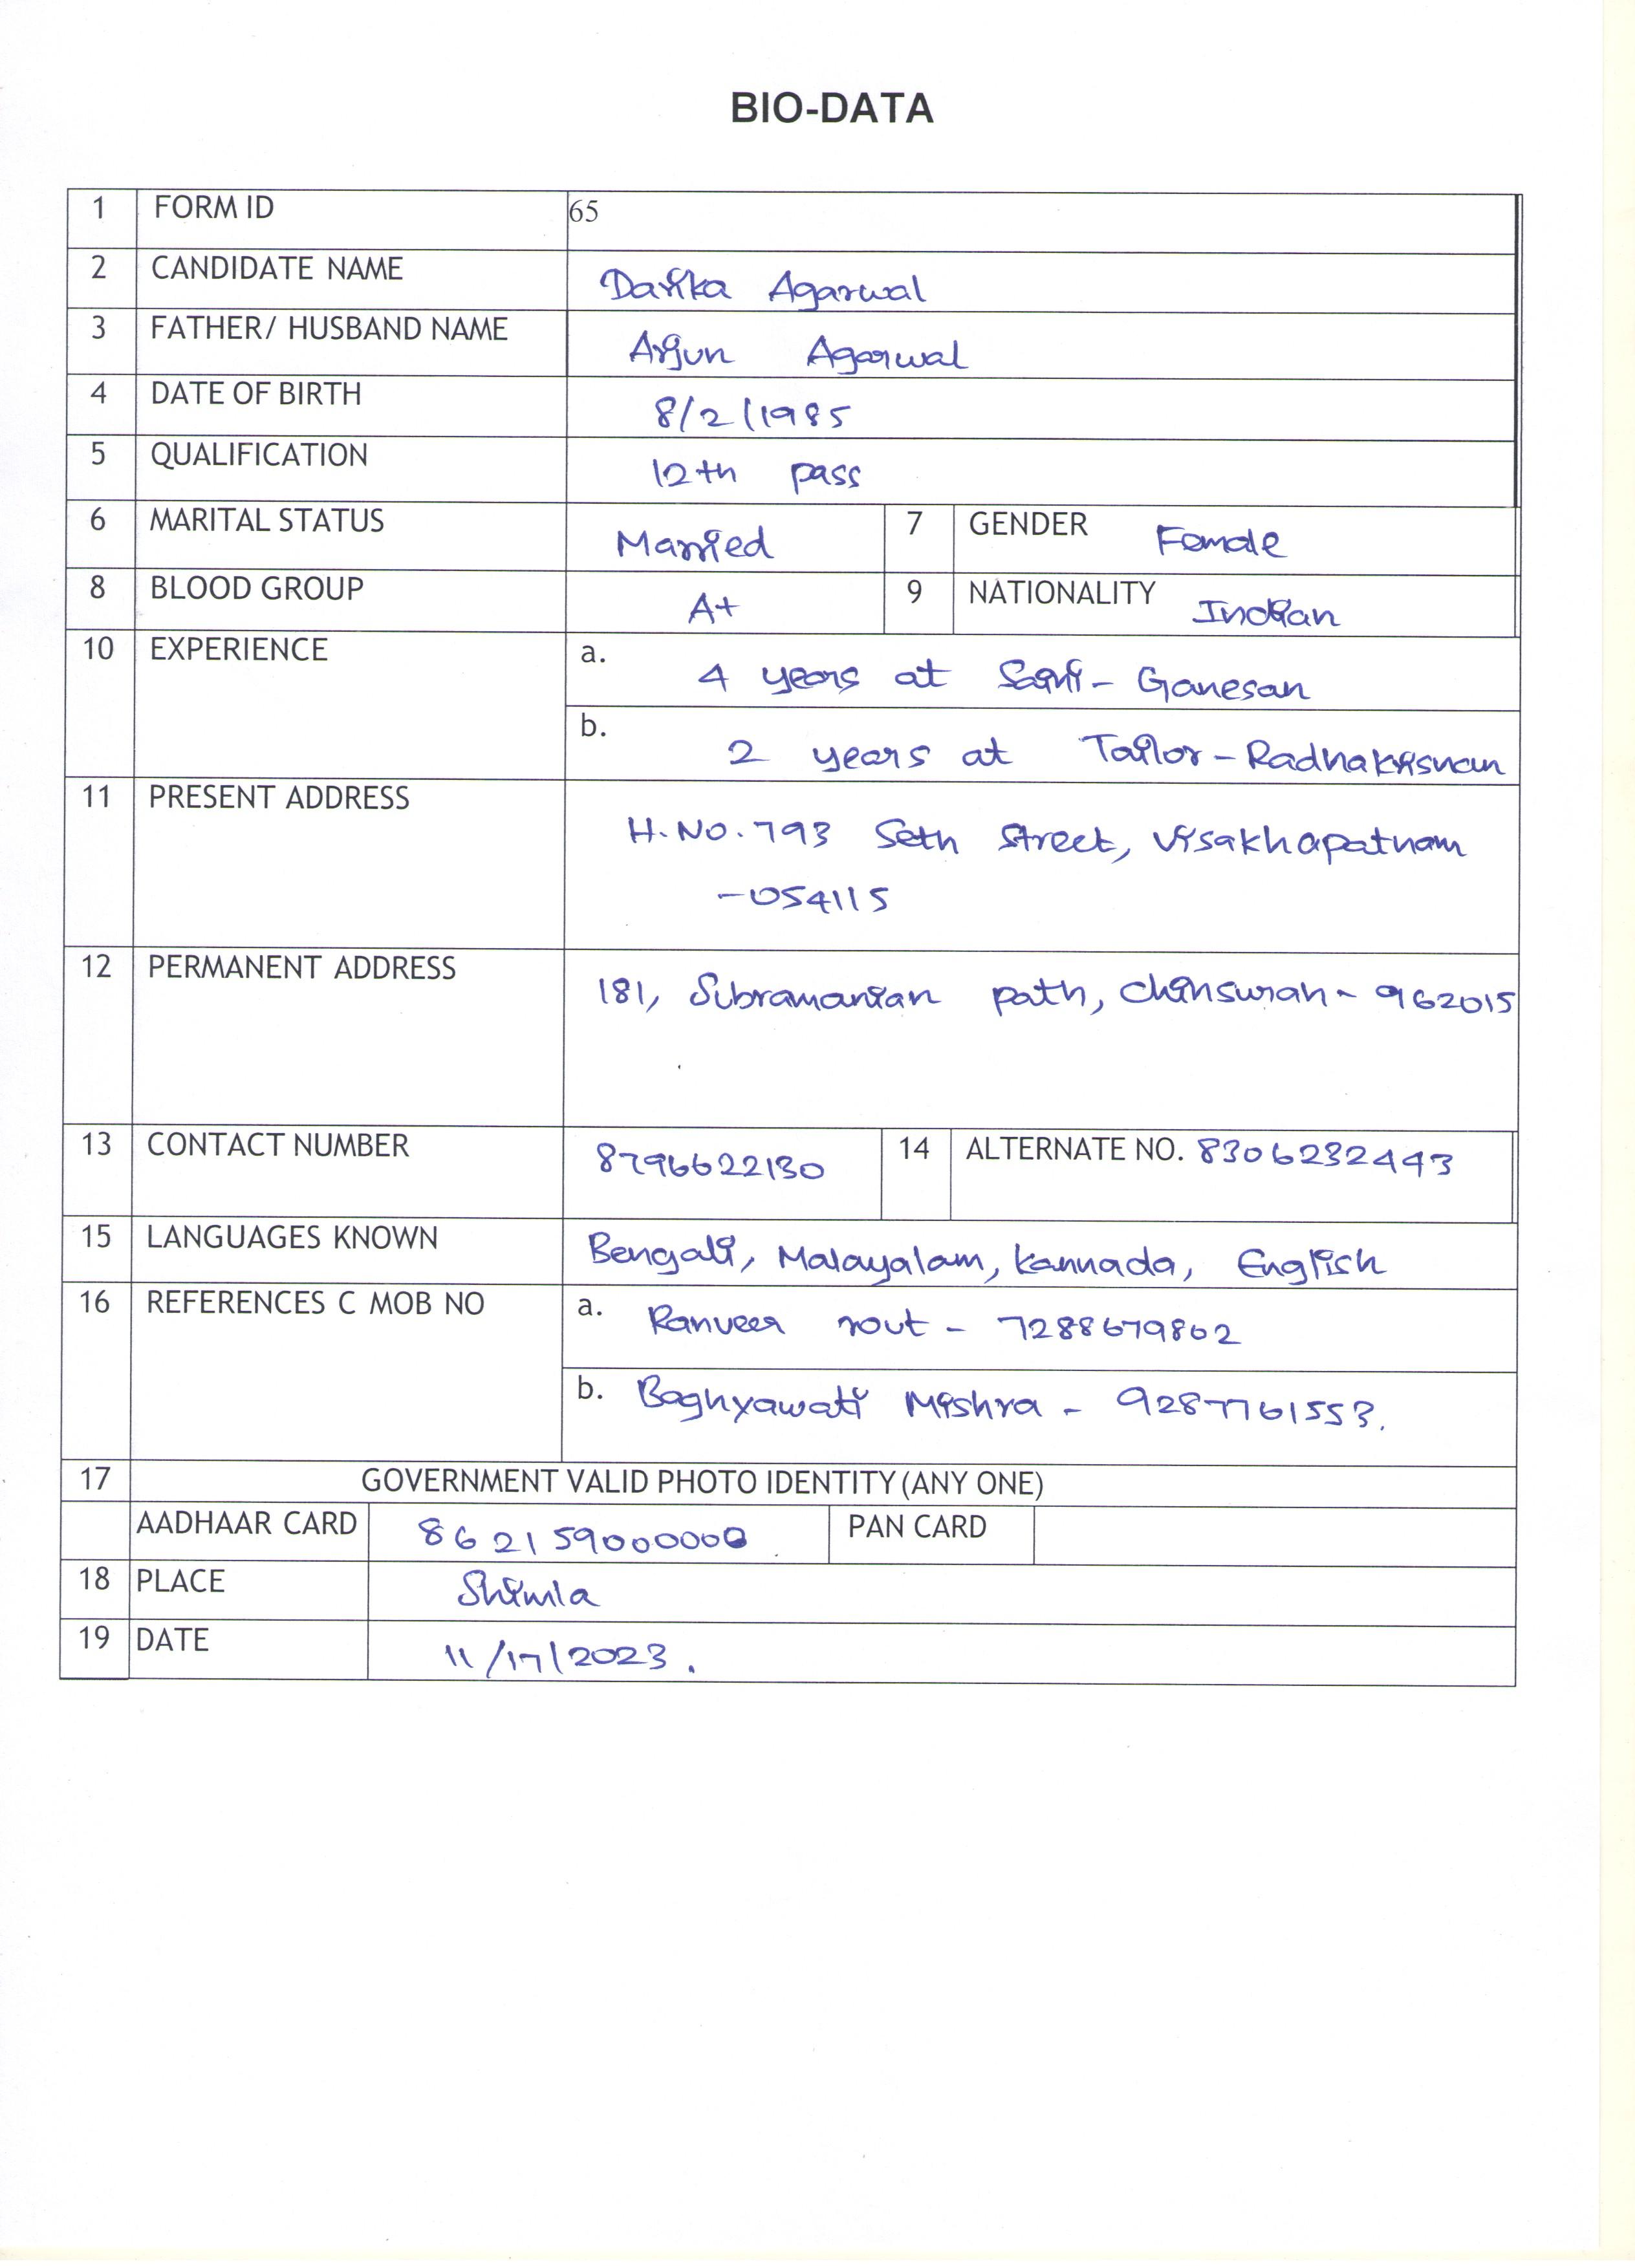 BIO-DATA
1 FORM ID 65
2 CANDIDATE NAME Darika Agarwal
3 FATHER/ HUSBAND NAME Arjun Agarwal
4 DATE OF BIRTH 8/2/1985
5 QUALIFICATION 12th pass
6 MARITAL STATUS Married 7 GENDER Female
8 BLOOD GROUP A+ 9 NATIONALITY Indian
10 EXPERIENCE a. 4 years at Saini - Ganesan
b. 2 years at Tailor - Radhakrisnan
11 PRESENT ADDRESS H.No.793 Seth Street, Visakhapatnam
-054115
12 PERMANENT ADDRESS 181, Subramanian path, Chinsurah - 962015
13 CONTACT NUMBER 8796622130 14 ALTERNATE NO. 8306232443
15 LANGUAGES KNOWN Bengali, Malayalam, Kannada, English
16 REFERENCES C MOB NO a. Ranveer rout - 7288679802
b. Baghyawati Mishra - 9287761553.
17 GOVERNMENT VALID PHOTO IDENTITY (ANY ONE)
AADHAAR CARD 862159000000 PAN CARD
18 PLACE Shimla
19 DATE 11/17/2023.